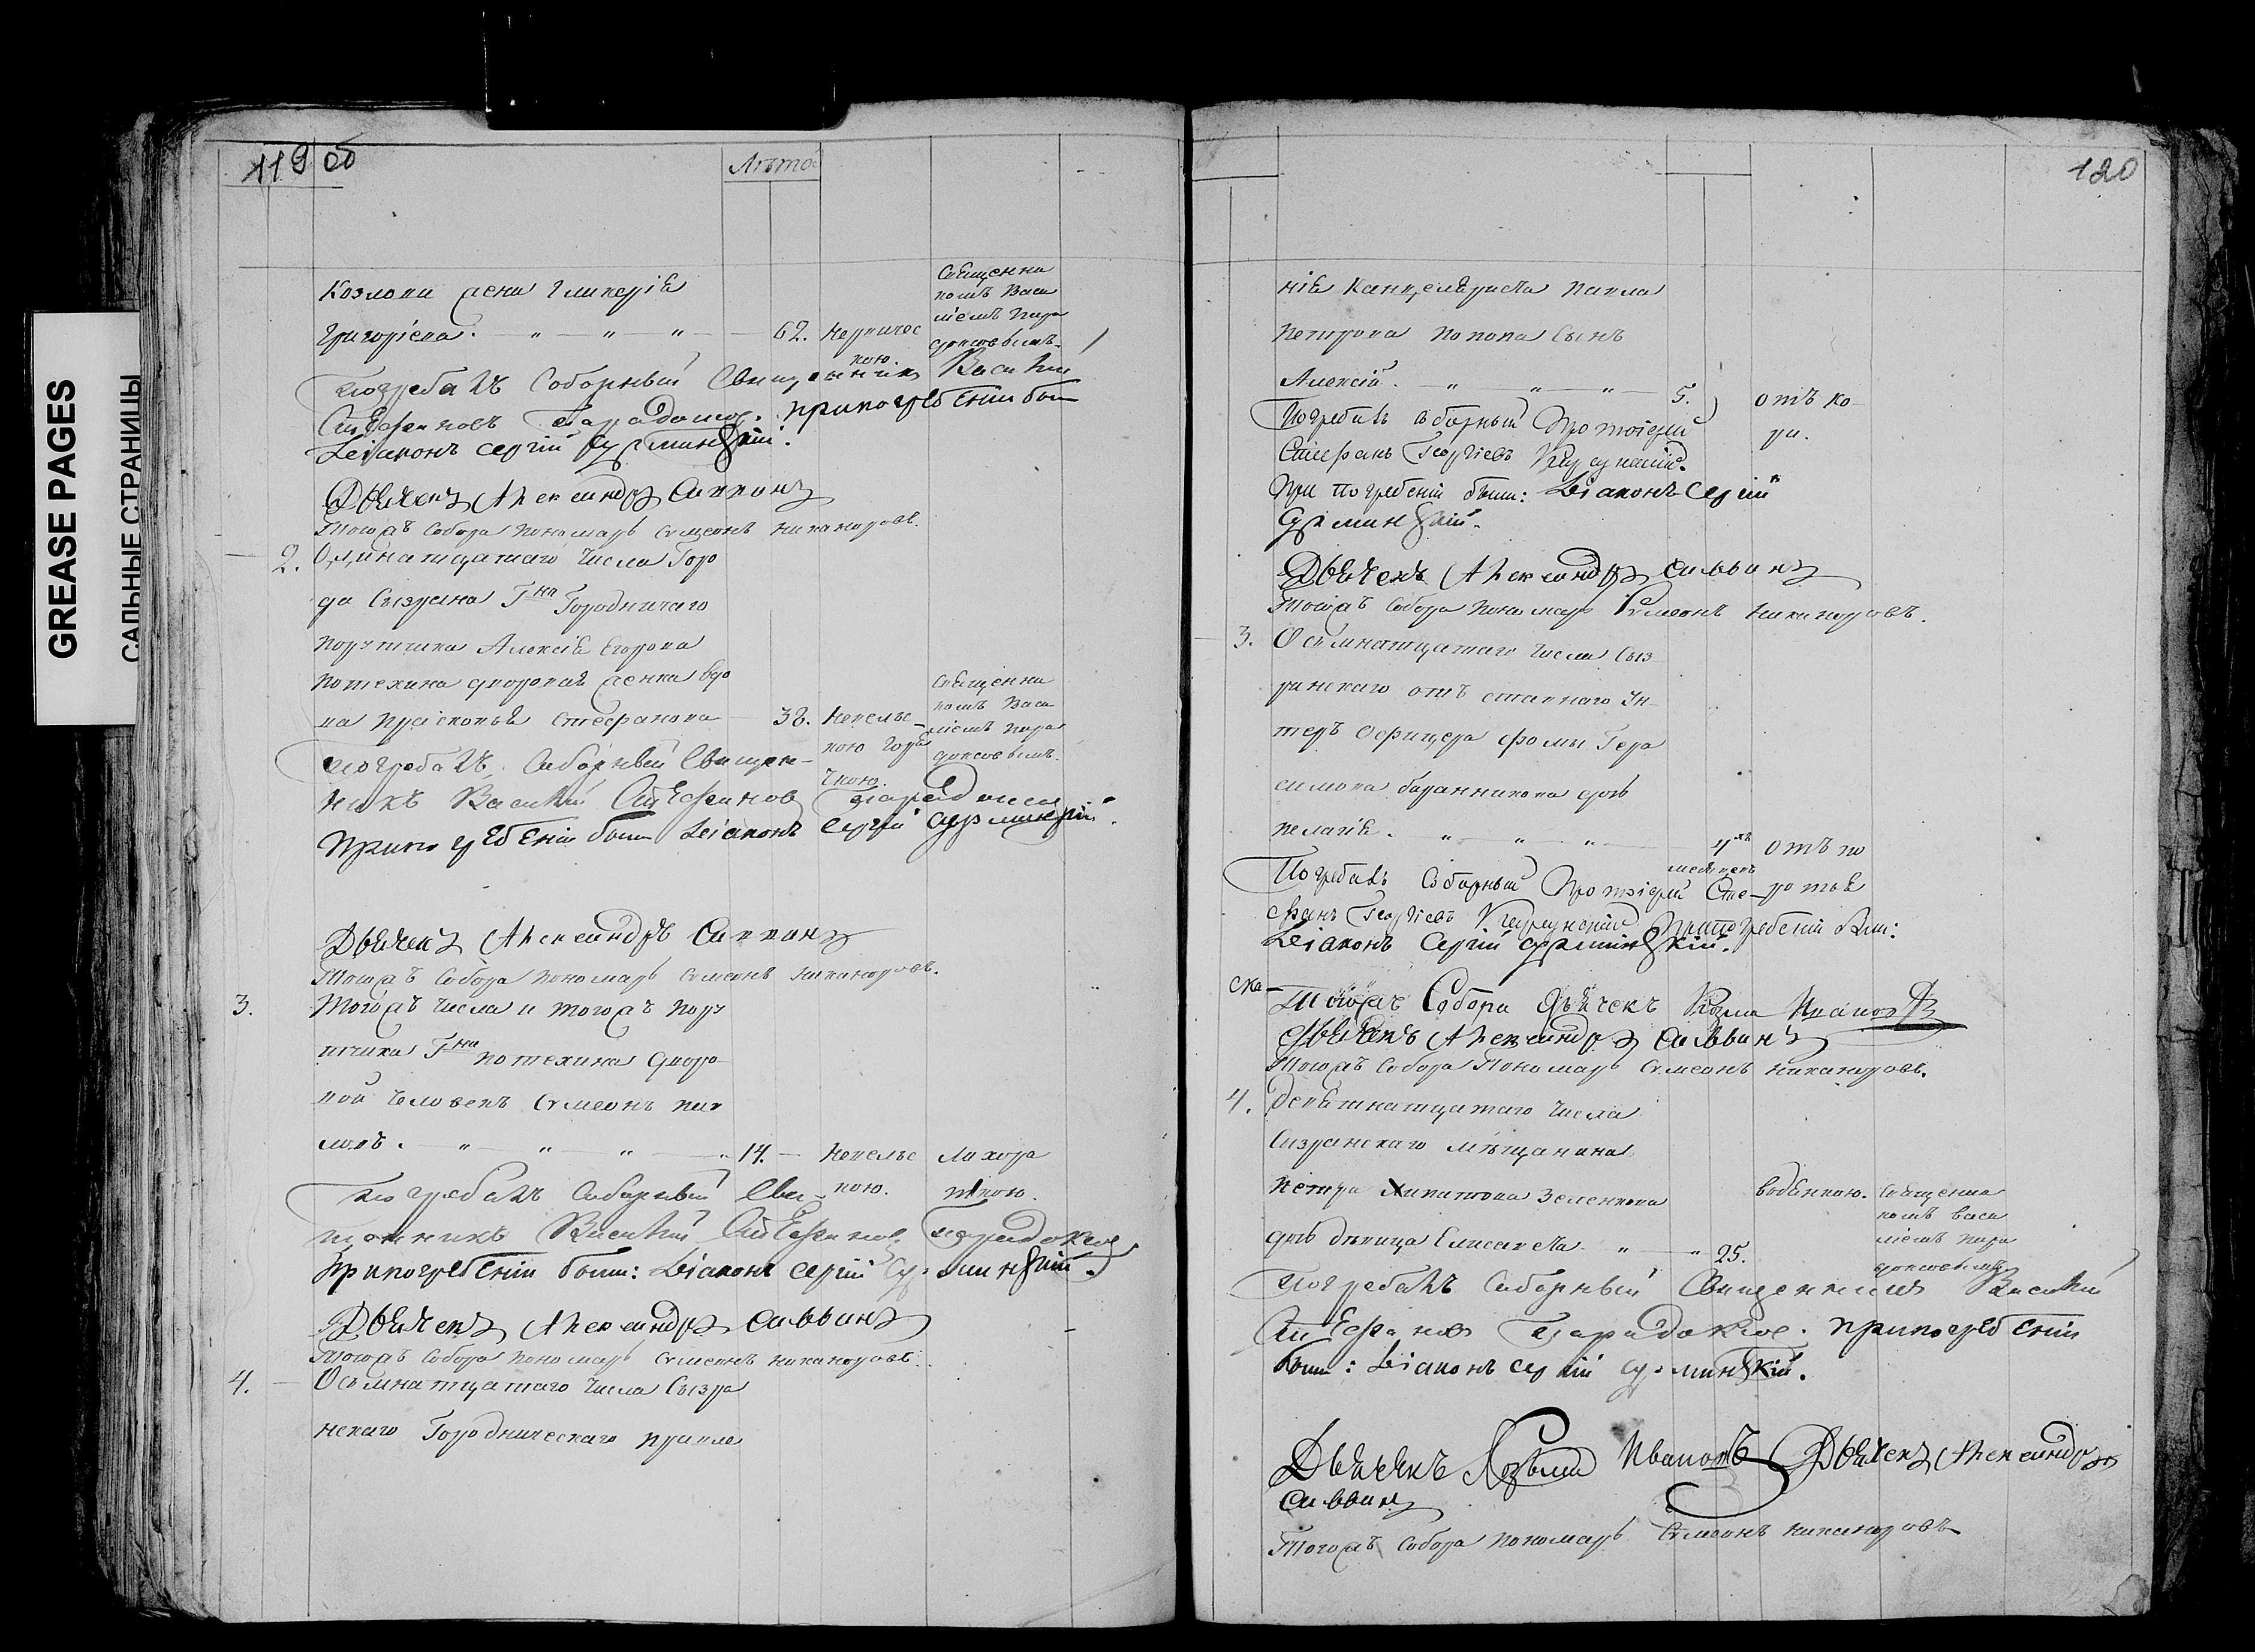 GREASE PAGES
САЛЬНЫЕ СТРАНИЦЫ
119 об
Лѣто
Козлова жена Гликерія
Григорьева. 62. Нервичес
кою.
Священни
комъ Васи
ліемъ Пара
доксовымъ.
Погребалъ Соборный Священникъ Василій
Стефановъ Парадоксовъ. При погребеніи были
Діаконъ Сергій
Дьячекъ Александръ Саввинъ
Тогожъ Собора пономарь Сѵмеонъ Никаноровъ.
2. Одинатцатаго числа Горо
да Сызрана Гна Городничаго
Порутчика Алексѣя Егорова
Потехина дворовая женка вдо
ва Прасковья Стефанова 38. Невелѣс
кою горя
чкою.
Священни
комъ Васи
ліемъ Пара
доксовымъ.
Погребалъ Соборный Священ-
никъ Василій Стефановъ Парадоксовъ
При погребеніи были Діаконъ Сергій
Дьячекъ Александръ Саввинъ
Тогожъ Собора пономарь Сѵмеонъ Никаноровъ.
3. Тогожъ числа и тогожъ Пору
тчика Гна Потехина дворо
вой человекъ Сѵмеонъ
14.
Лихора
ткою.
Погребалъ Соборный Свя-
щенникъ Василій Стефановъ Парадоксовъ
При погребеніи были: Діаконъ Сергій
Дьячекъ Александръ Саввинъ
Тогожъ Собора пономарь Сѵмеонъ Никаноровъ.
4. Осьмнатцатаго числа Сызра
нскаго Городническаго правле
120
нія Канцеляриста Павла
Петрова Попова сынъ
Алексій. 5. отъ ко-
ри.
Погребалъ соборный Протоіерей
Стефанъ Георгіевъ
При погребеніи были: Діаконъ Сергій
Дьячекъ Александръ Саввинъ
Тогожъ Собора пономарь Сѵмеонъ Никаноровъ.
3. Осьмнатцатаго числа Сыз
ранскаго отъ ставнаго Ун-
теръ Офицера Фомы Гера
симова Баранникова дочь
Пелагія. 4хъ отъ
месяцевъ
Погребалъ Соборный Протоіерей Сте-
фанъ Георгіевъ При погребеніи были:
Діаконъ Сергій
Тогожъ Собора Дьячекъ Козма Ивановъ
Дьячекъ Александръ Саввинъ
Тогожъ Собора Пономарь Сѵмеонъ Никаноровъ.
4. Девятнатцатаго числа
Сызранскаго мѣщанина
Петра Ипатова Зеленкова водянкою.
дочь дѣвица Елисавета 25.
Священни
комъ Васи
ліемъ Пара
доксовымъ
Погребалъ Соборный Священникъ Василій
Стефановъ Парадоксовъ. При погребеніи
были: Діаконъ Сергій
Дьячекъ Козьма Ивановъ Дьячекъ Александръ
Саввинъ
Тогожъ Собора пономарь Сѵмеонъ Никаноровъ